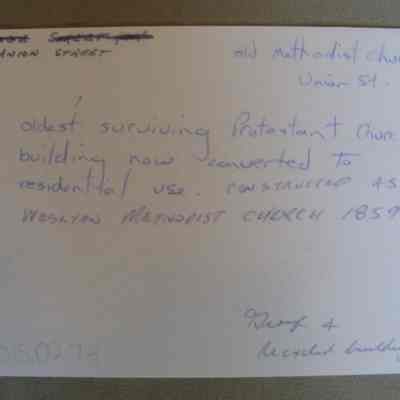 UNION STREET
old Methodist Chur
Union St.
oldest surviving Protestant Churc
building now converted to
residential use. CONSTRUCTED AS
WESLYAN METHODIST CHURCH 1859
&
Recycled building